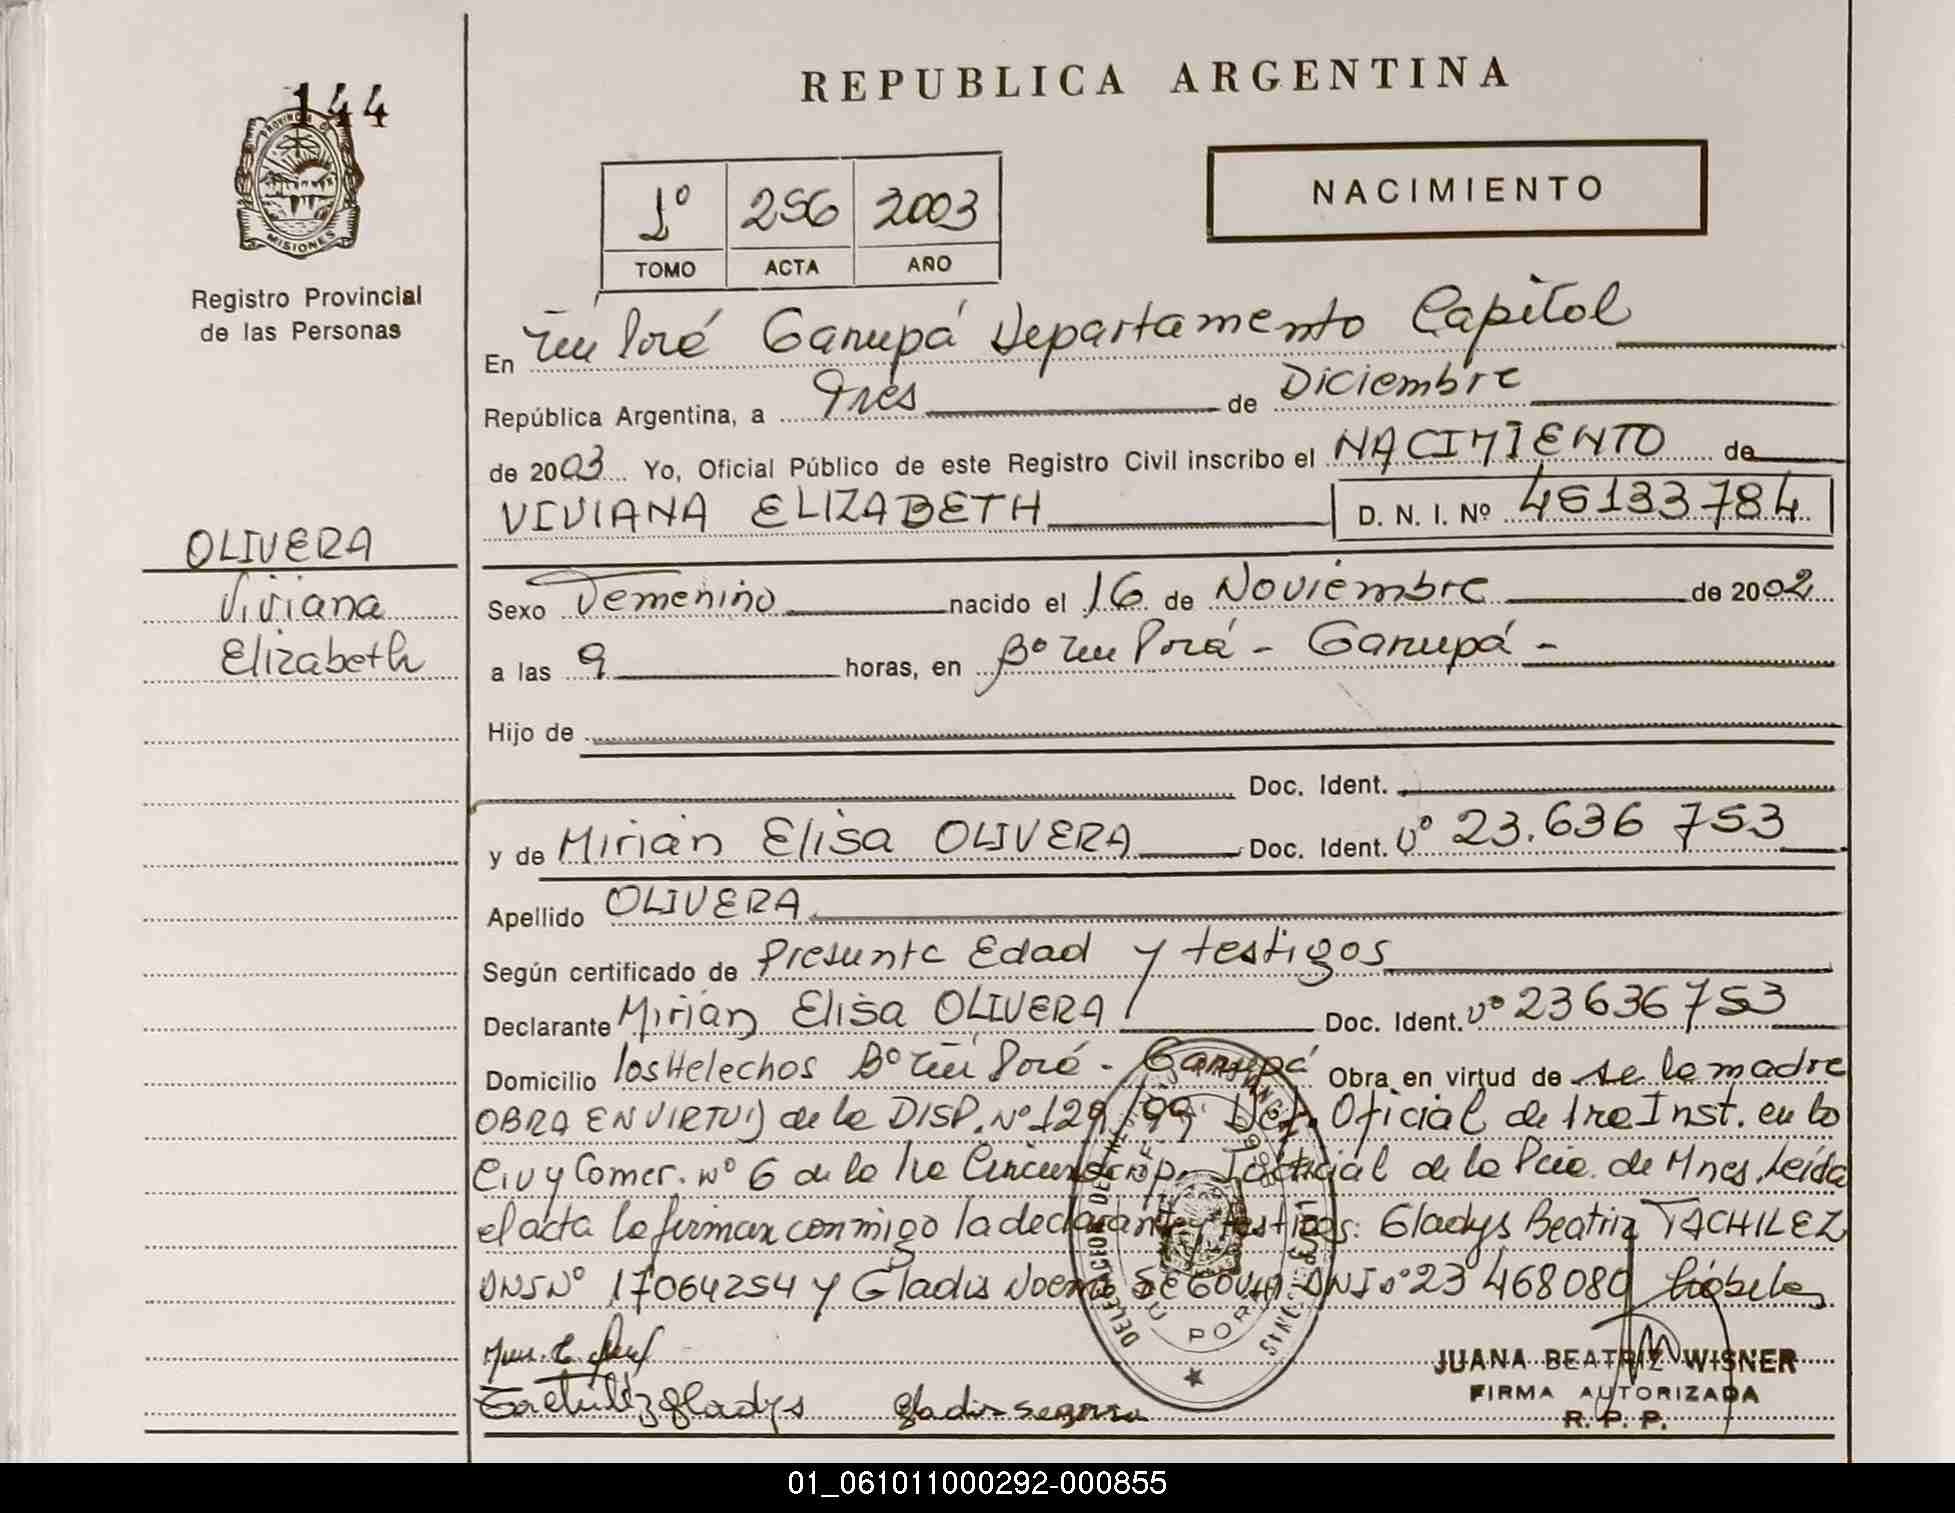 REPUBLICA ARGENTINA
144
PROVINCIA D
MISIONES
Registro Provincial
de las Personas
1º 256 2003
TOMO ACTA AÑO
NACIMIENTO
En Porá Garupá Departamento Capital
República Argentina, a Tres de Diciembre
de 2003 Yo, Oficial Público de este Registro Civil inscribo el NACIMIENTO de
VIVIANA ELIZABETH D. N. I. Nº 45133784
OLIVERA
Viviana
Elizabeth
Sexo Femenino nacido el 16 de Noviembre de 2002
a las 9 horas, en Bº Porá - Garupá -
Hijo de
Doc. Ident.
y de Mirian Elisa OLIVERA Doc. Ident. Nº 23.636 753
Apellido OLIVERA
Según certificado de Presunta Edad y testigos
Declarante Mirian Elisa OLIVERA Doc. Ident. Nº 23636753
Domicilio los Helechos Bº Porá - Garupá Obra en virtud de se la madre
OBRA EN VIRTUD de la DISP. Nº 129/99 Def. Oficial de 1ra Inst. en lo
Civ y Comer. Nº 6 de la 1ra Circunscrip. Judicial de la Pcia. de Mnes. Leída
el acta la firman conmigo la declarante y testigos: Gladys Beatriz TACHILEZ
DNI Nº 17064254 y Gladis Noemi SEGOVIA DNI Nº 23468080
Tachilez Gladys Gladis Segovia
JUANA BEATRIZ WISNER
FIRMA AUTORIZADA
R. P. P.
01_061011000292-000855